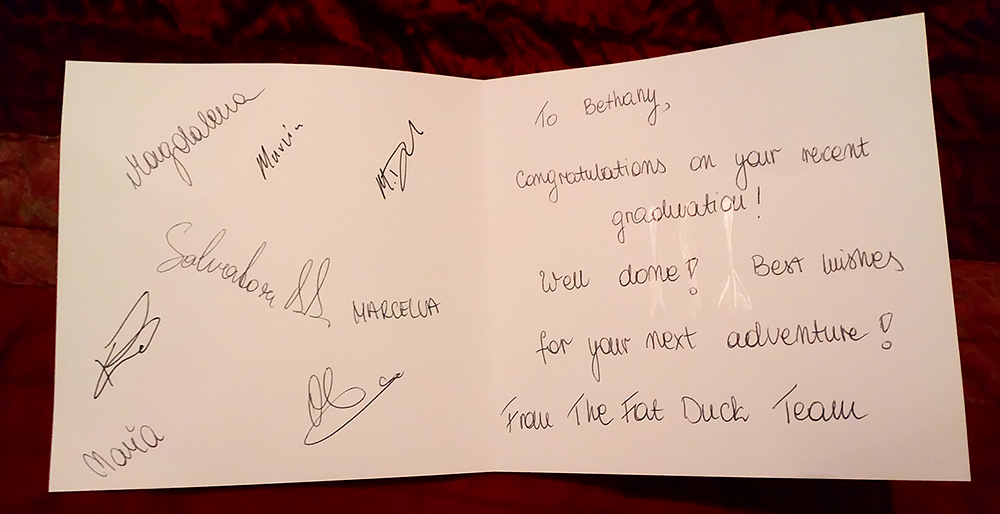 Magdalena
Maria
Salvatora SS
MARCELLA
Maria
To Bethany,
Congratulations on your recent
graduation!
Well done! Best wishes
for your next adventure!
From The Fat Duck Team